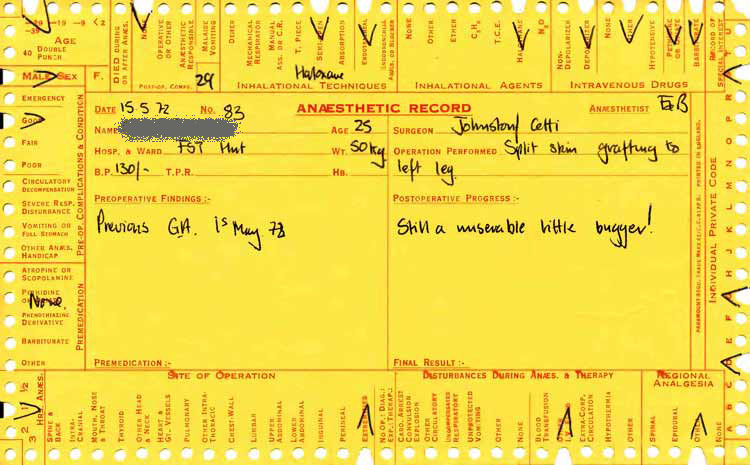 -29 -19 -9 < 2
-39
AGE
40 DOUBLE PUNCH
DIED DURING OR AFTER ANÆS.
NONE
OPERATIVE OR OTHER
ANÆSTHETIC RESPONSIBLE
MALAISE VOMITING
OTHER
POST-OP. COMPS.
29
MECHANICAL RESPIRATOR
MANUAL ASS. OR C.R.
T. PIECE
ABSORPTION
Halothane
INHALATIONAL TECHNIQUES
NONE
OTHER
ETHER
C₃H₆
T.C.E.
N₂O
INHALATIONAL AGENTS
NON-DEPOLARIZER
DEPOLARIZER
NONE
OTHER
HYPOTENSIVE
INTRAVENOUS DRUGS
RECORD OF SPECIAL INTEREST
MALE SEX F.
EMERGENCY
GOOD
FAIR
POOR
CIRCULATORY DECOMPENSATION
SEVERE RESP. DISTURBANCE
VOMITING OR FULL STOMACH
OTHER ANÆS. HANDICAP
PRE-OP. COMPLICATIONS & CONDITION
ATROPINE OR SCOPOLAMINE
None
PHENOTHIAZINE DERIVATIVE
BARBITURATE
OTHER
PREMEDICATION
ANÆSTHETIC RECORD
DATE 15.5.72 No. 83
ANÆSTHETIST
NAME
AGE 25
SURGEON Johnston/ Cetti
HOSP. & WARD FST Hut WT. 50kg
OPERATION PERFORMED Split skin grafting to
B.P. 130/- T.P.R. HB.
left leg.
PREOPERATIVE FINDINGS :-
Previous G.A. 1st May 72
POSTOPERATIVE PROGRESS :-
Still a miserable little bugger!
PREMEDICATION :-
FINAL RESULT :-
PRINTED IN ENGLAND.
INDIVIDUAL PRIVATE CODE
3 2 1 ½
HRS. ANÆS.
SITE OF OPERATION
SPINE & BACK
INTRA-CRANIAL
MOUTH, NOSE & THROAT
THYROID
OTHER HEAD & NECK
HEART & GT. VESSELS
PULMONARY
OTHER INTRA-THORACIC
CHEST-WALL
LUMBAR
UPPER ABDOMINAL
LOWER ABDOMINAL
INGUINAL
PERINEAL
EXTREMITIES
DISTURBANCES DURING ANÆS. & THERAPY
NO OP. (DIAG.; EXP.; THERAP.)
CARD. ARREST
CONVULSION
EXPLOSION
OTHER CIRCULATORY
UNSUPPRESSED RESPIRATORY
UNPROTECTED VOMITING
OTHER
NONE
BLOOD TRANSFUSION
EXTRA-CORP. CIRCULATION
HYPOTHERMIA
OTHER
NONE
REGIONAL ANALGESIA
SPINAL
EPIDURAL
OTHER
NONE